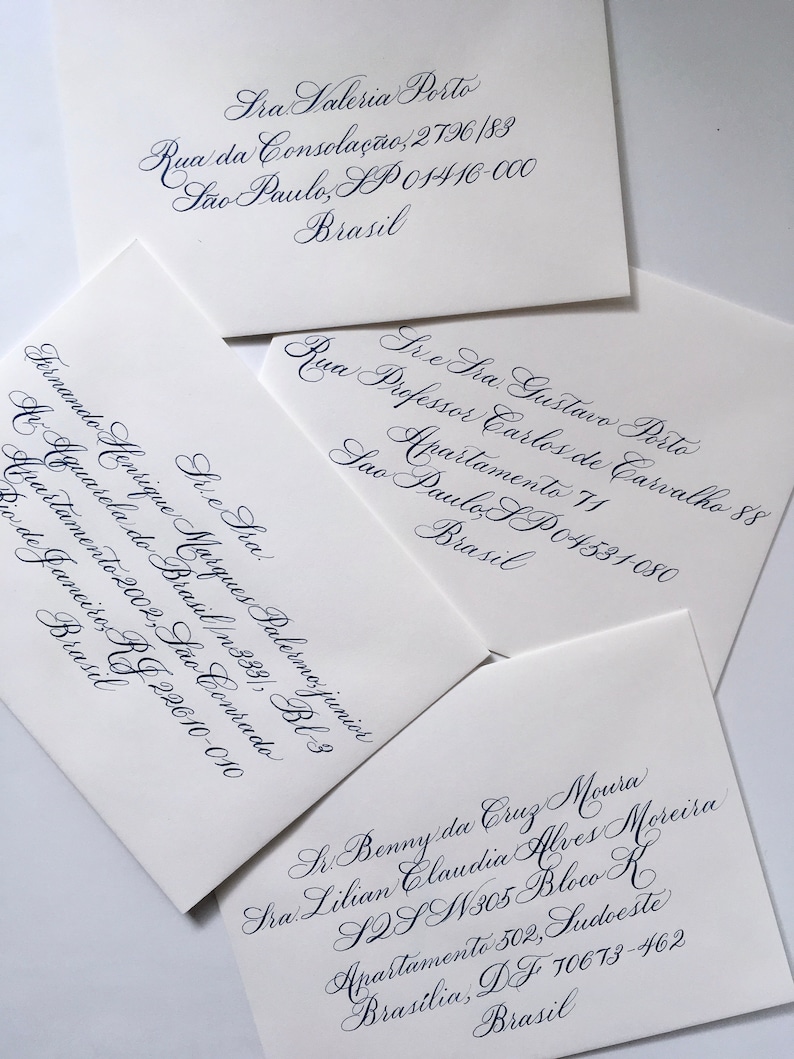 Sra. Valeria Porto
Rua da Consolação, 2796/83
São Paulo, SP 01416-000
Brasil
Sr. e Sra. Gustavo Porto
Rua Professor Carlos de Carvalho 88
Apartamento 71
Sao Paulo, SP 04531-080
Brasil
Sr. e Sra.
Fernando Henrique Marques Palermo, junior
Av Aguarela do Brasil/n333/, Bl-3
Apartamento 2002, São Conrado
Rio de Janeiro, RJ 22610-010
Brasil
Sr. Benny da Cruz Moura
Sra. Lilian Claudia Alves Moreira
SQSW305 Bloco K
Apartamento 502, Sudoeste
Brasília, DF 70673-462
Brasil